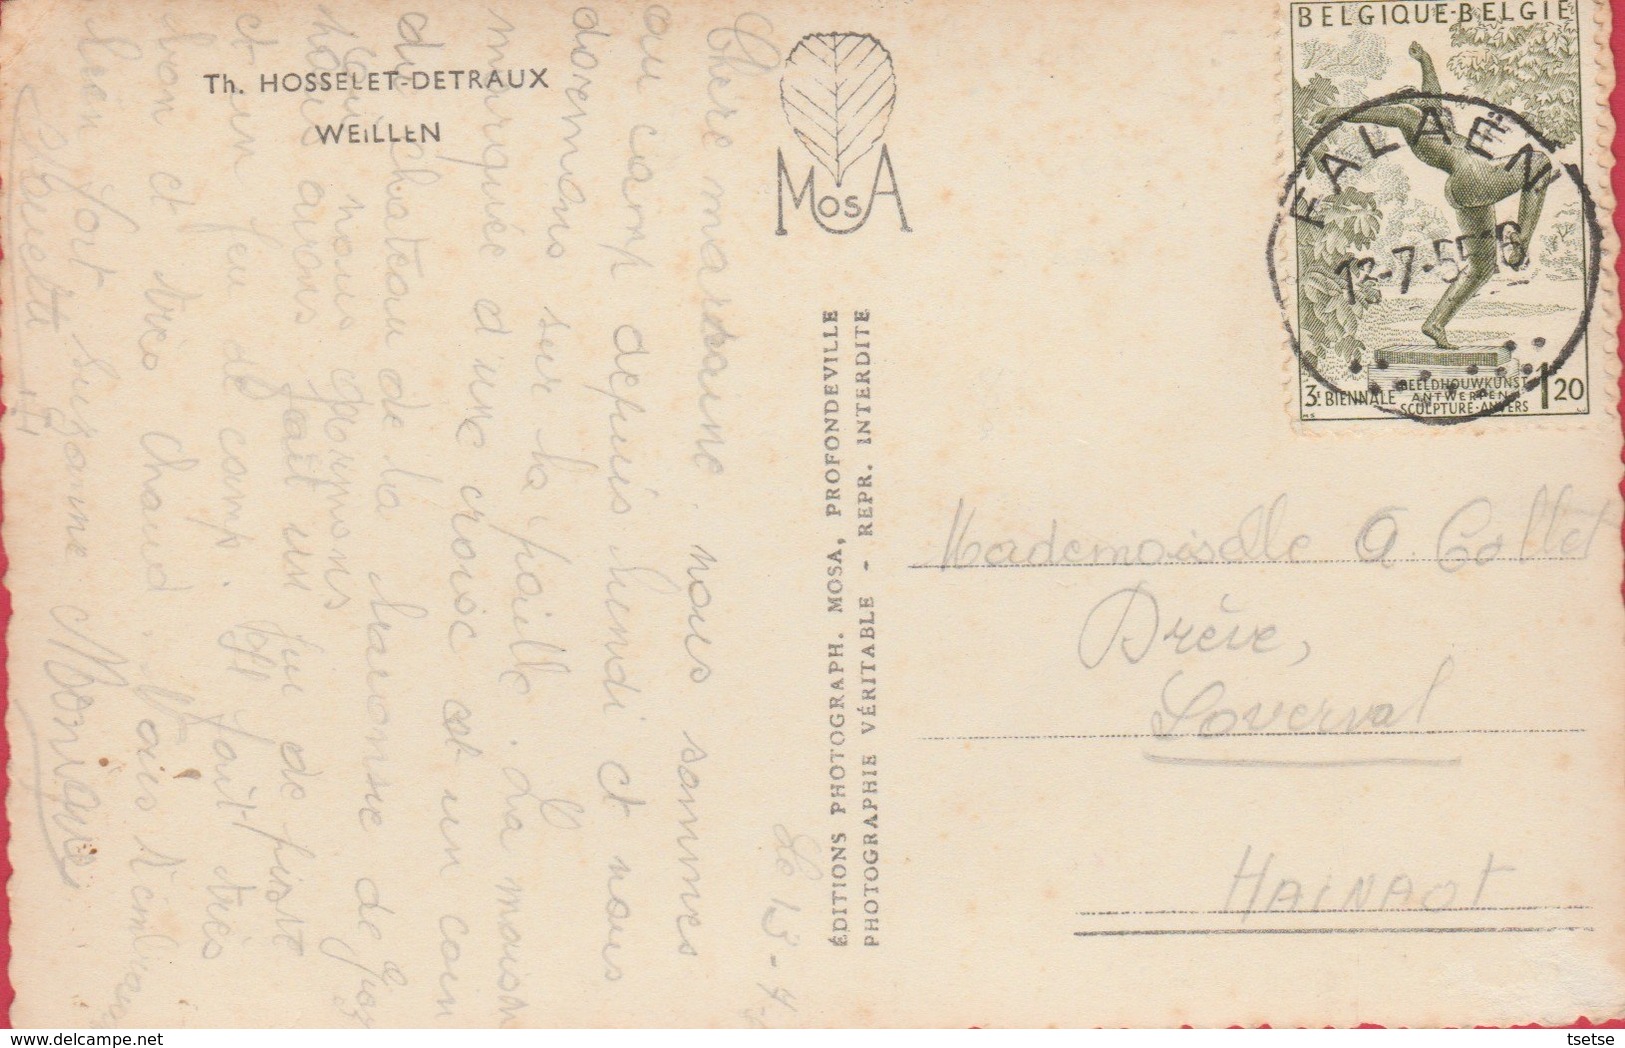 BELGIQUE-BELGIE
FALAEN
13-7-55 16
3E BIENNALE
BEELDHOUWKUNST
ANTWERPEN
SCULPTURE-ANVERS
1 20
Th. HOSSELET-DETRAUX
WEILLEN
MOSA
ÉDITIONS PHOTOGRAPH. MOSA, PROFONDEVILLE
PHOTOGRAPHIE VÉRITABLE - REPR. INTERDITE
Mademoiselle A. Collet
Drève,
Loverval
HAINAUT
Le 13-7-
Chère marraine. nous sommes
au camp depuis lundi et nous
dormons sur la paille. La maison
marquée d'une croix est un coin
du château de la
où nous dormons
nous avons fait un jeu de piste
et un feu de camp. Il fait très
bon et très chaud.
bien fort Suzanne Monique
tsetse delcampe.net